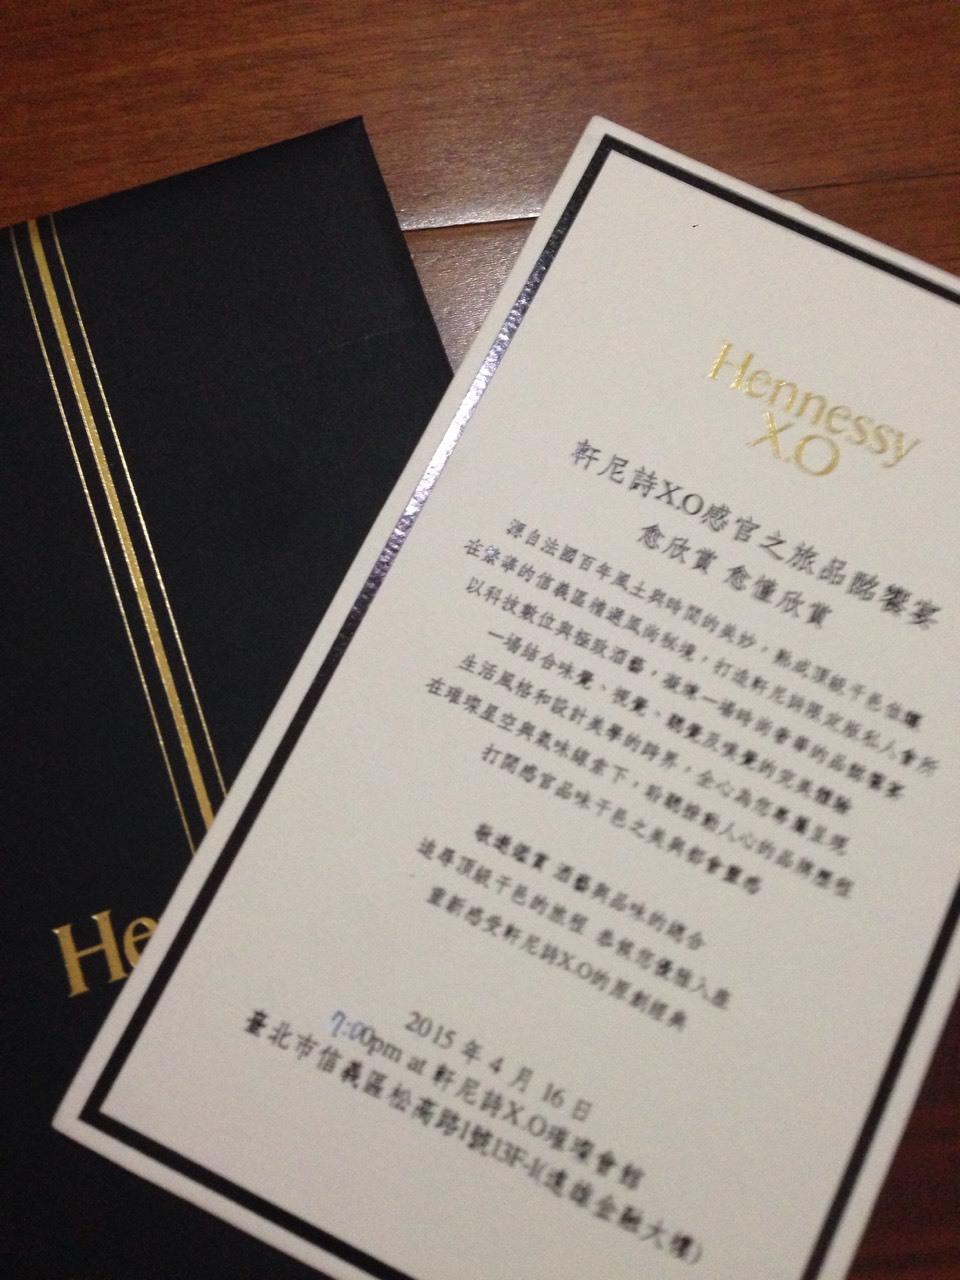 He
Hennessy
X.O
軒尼詩X.O感官之旅品酩饗宴
愈欣賞 愈懂欣賞
源自法國百年風土與時間的美妙，熟成頂級干邑佳釀
在繁華的信義區精選風尚秘境，打造軒尼詩限定版私人會所
以科技數位與極致酒藝，凝煉一場時尚奢華的品酩饗宴
一場結合味覺、視覺、聽覺及嗅覺的完美體驗
生活風格和設計美學的跨界，全心為您專屬呈現
在璀璨星空與氣味繚索下，聆聽撩動人心的品牌歷程
打開感官品味干邑之美與都會靈感
敬邀鑑賞 酒藝與品味的總合
追尋頂級干邑的旅程 恭候您優雅入座
重新感受軒尼詩X.O的原創經典
2015 年 4 月 16 日
7:00pm at 軒尼詩X.O璀璨會館
臺北市信義區松高路1號13F-1(遠雄金融大樓)